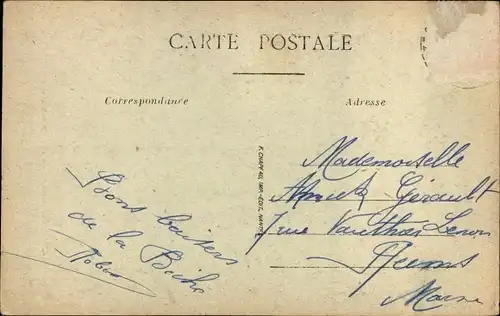 CARTE POSTALE
Correspondance
Adresse
Bons baisers
de la Biche
F. CHAPEAU, IMP.-EDIT., NANTES
Mademoiselle
Annick Gérault
7 rue Vauthier Lenoir
Reims
Marne